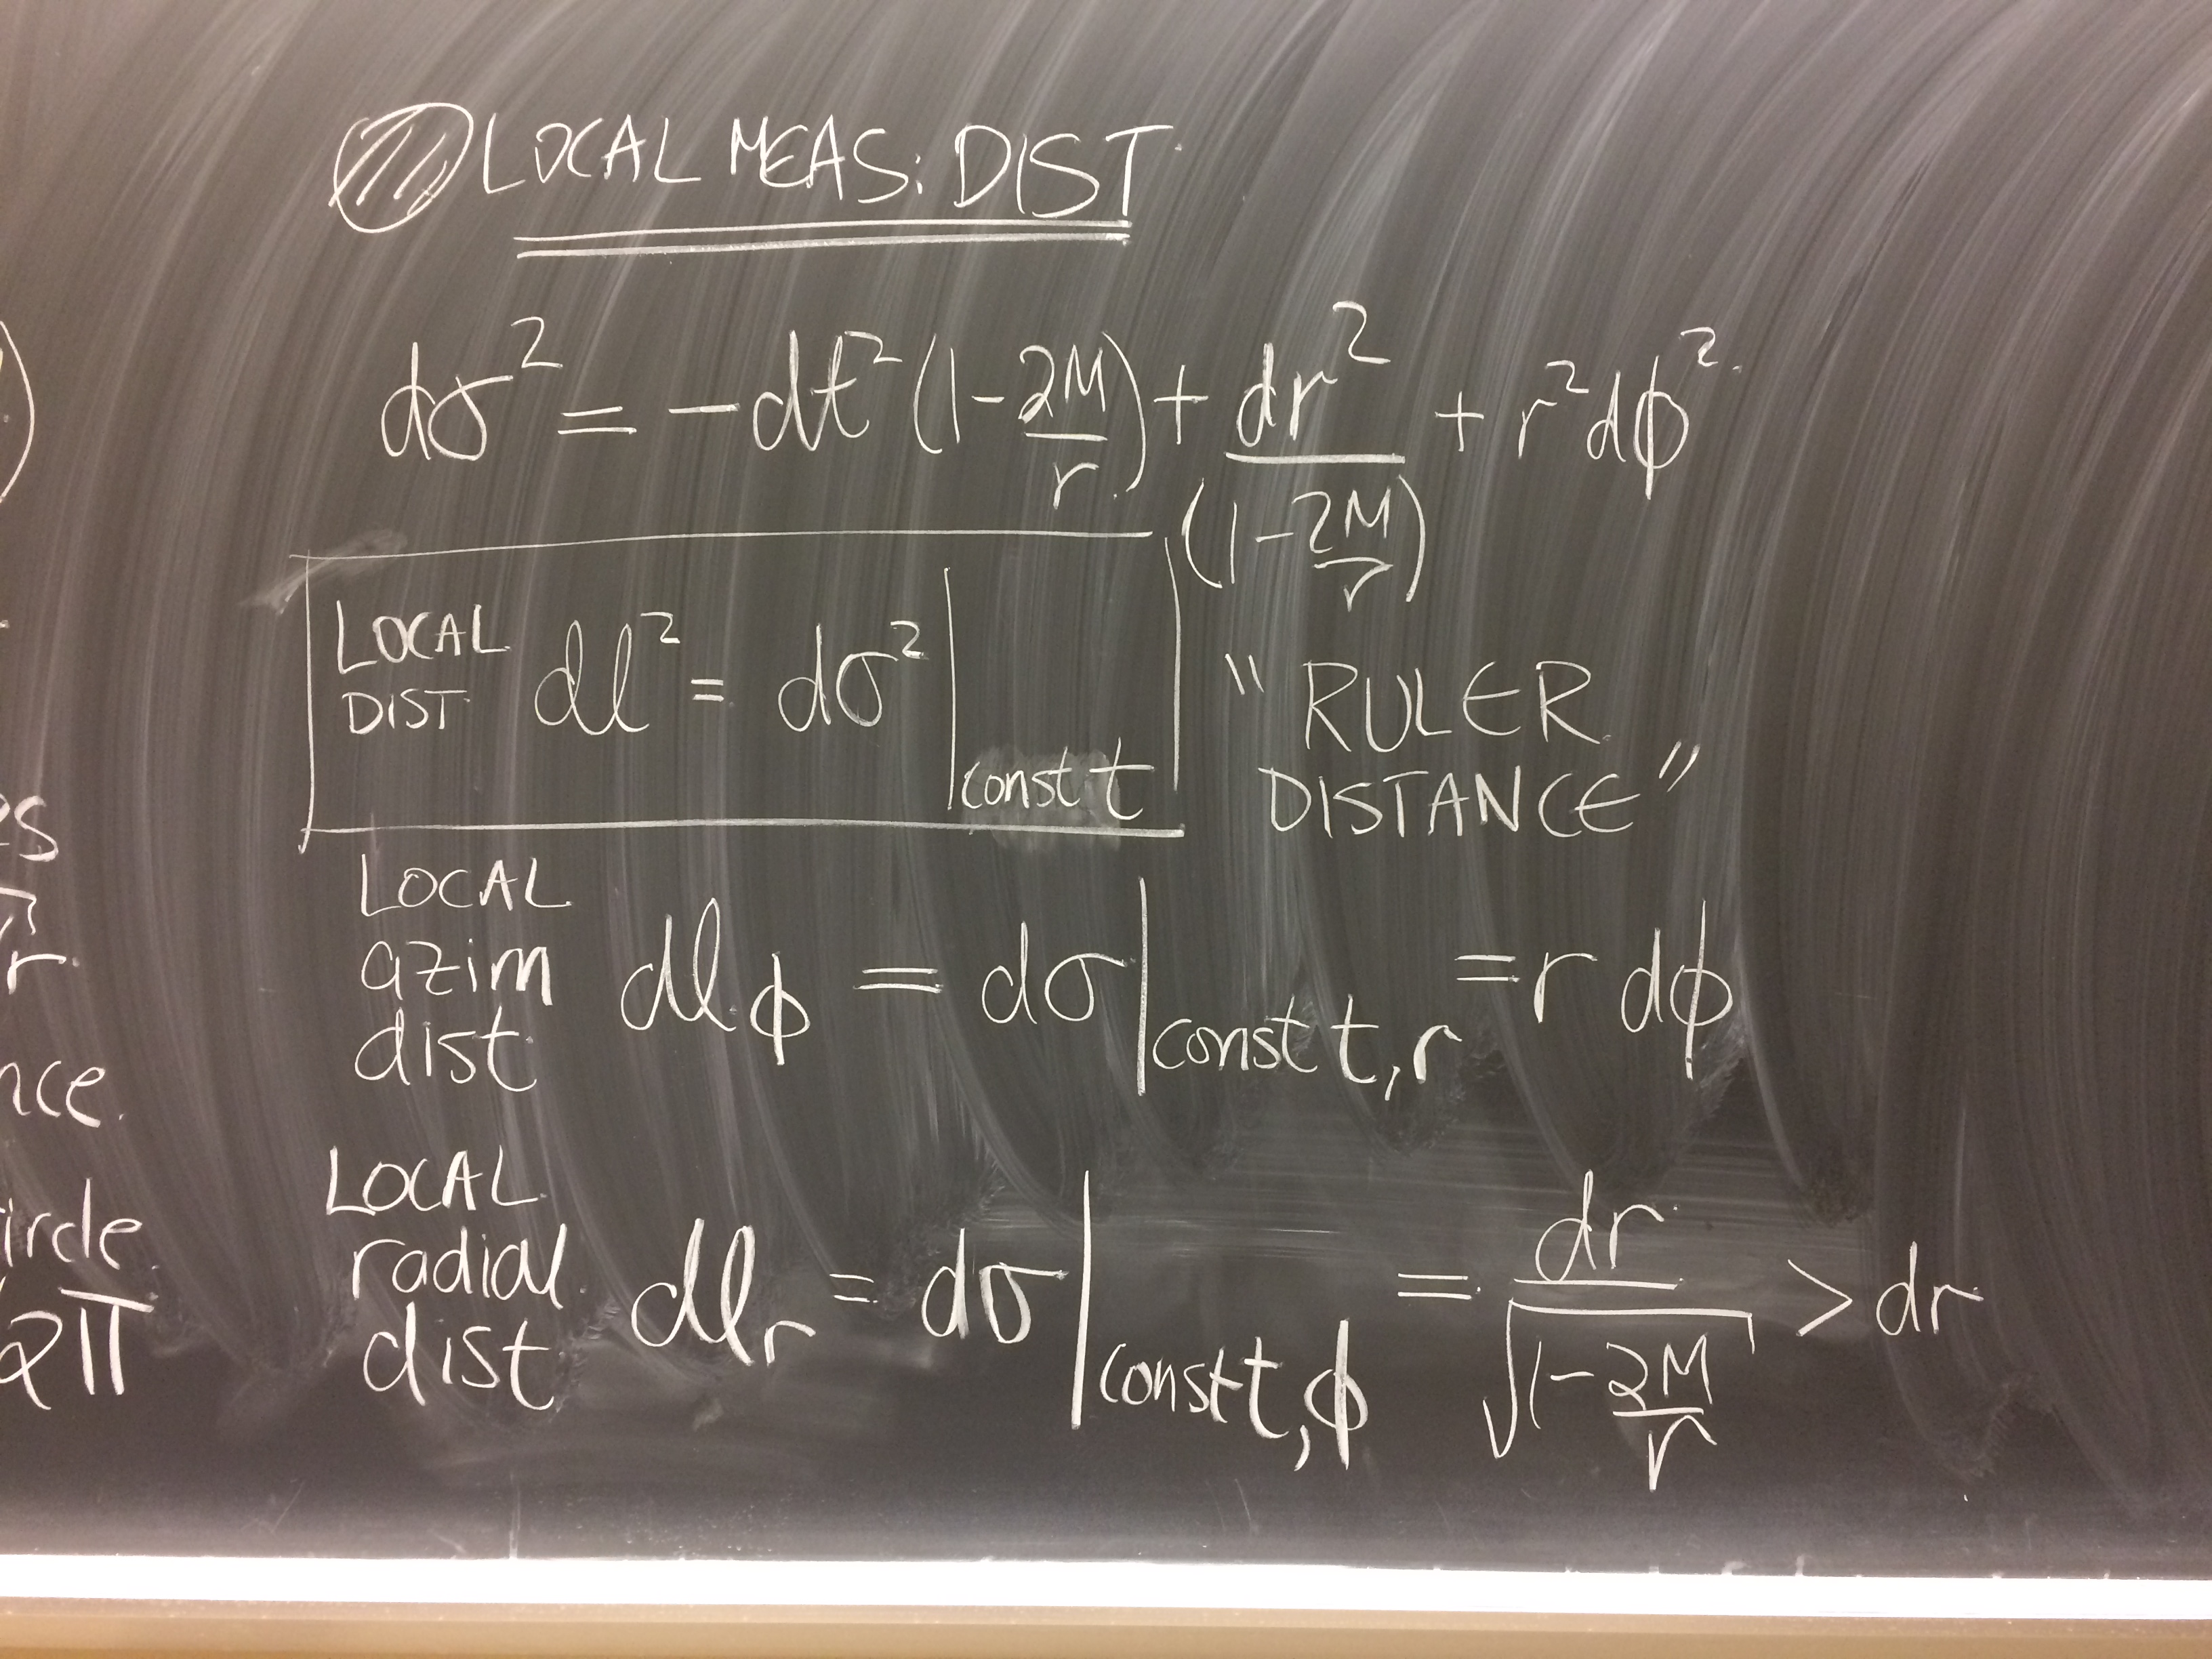 LOCAL MEAS: DIST
dσ² = -dt² (1 - 2M/r) + dr²/(1 - 2M/r) + r² dϕ²
LOCAL DIST dl² = dσ² |const t
"RULER
DISTANCE"
LOCAL
azim
dist dlϕ = dσ |const t, r = r dϕ
LOCAL
radial
dist dlr = dσ |const t, ϕ = dr/√(1 - 2M/r) > dr
es
r
nce.
ircle
2π